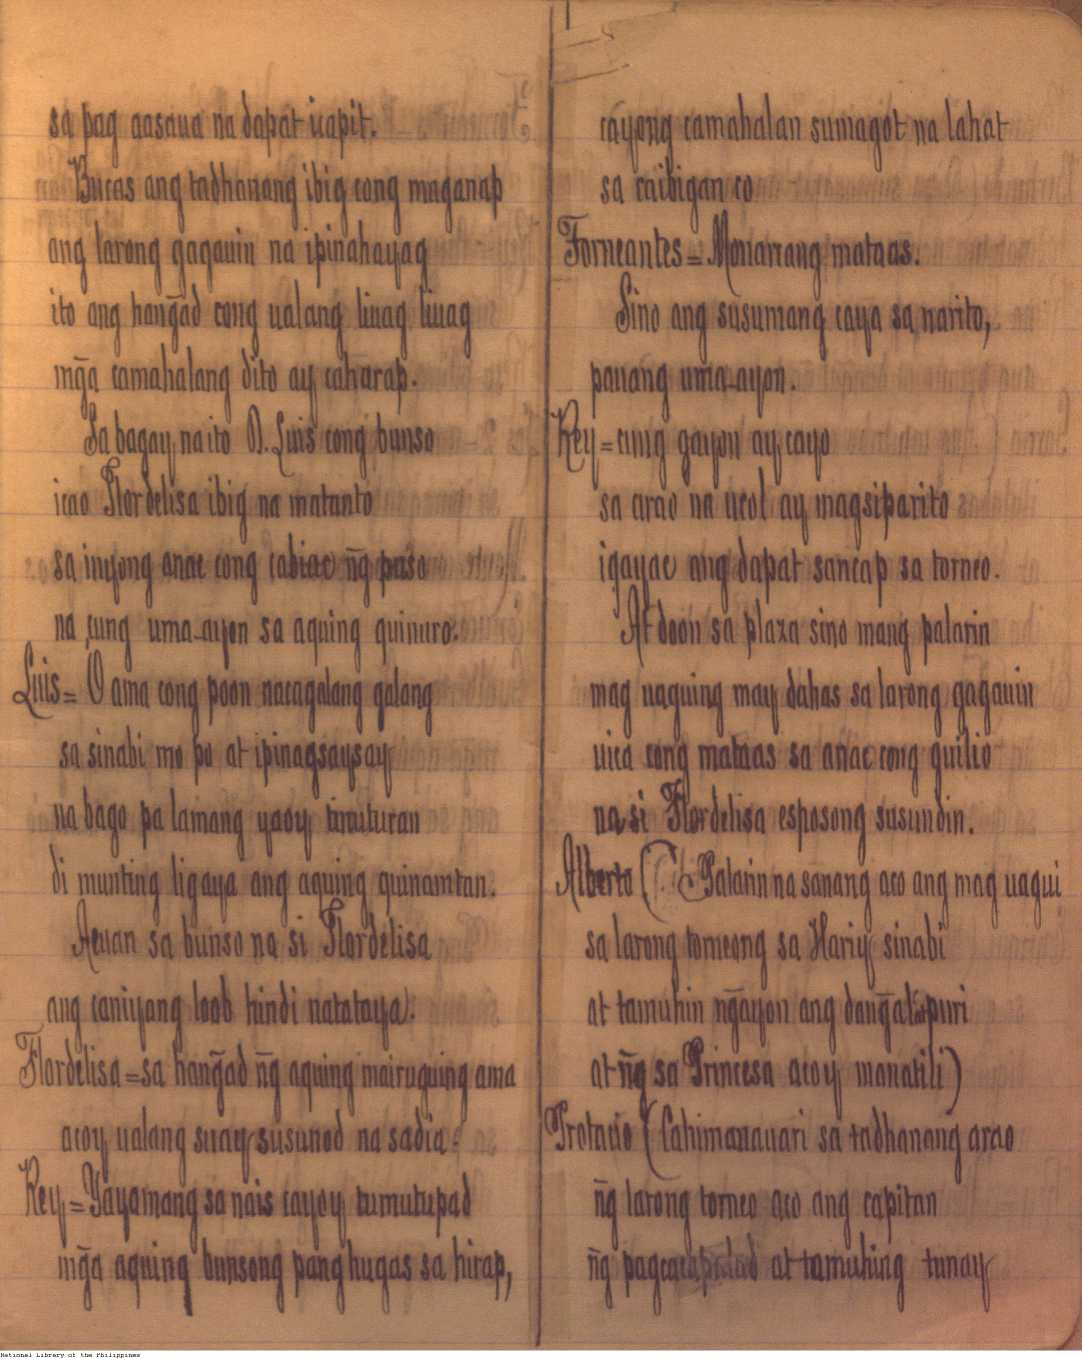 sa pag aasaua na dapat icapit.
Bucas ang tadhanang ibig cong maganap
ang larong gagauin na ipinahayag
ito ang hang̃ad cong ualang liuag liuag
mg̃a camahalang dito ay caharap.
Sa bagay na ito D. Luis cong bunso
icao Flordelisa ibig na matanto
sa inyong anac cong cabiac ng̃ puso
na cung uma-ayon sa aquing quinuro.
Luis= O ama cong poon nacagalang galang
sa sinabi mo po at ipinagsaysay
na bago pa lamang yaoy tinuturan
di munting ligaya ang aquing quinamtan.
Acuan sa bunso na si Flordelisa
ang caniyang loob hindi natataya.
Flordelisa=sa hang̃ad ng̃ aquing mairuguing ama
acoy ualang suay susunod na sadia.
Rey=Yayamang sa nais cayoy tumutupad
mg̃a aquing bunsong pang hugas sa hirap,
cayong camahalan sumagot na lahat
sa caibigan co
Forneantes=Monarcang mataas.
Sino ang susumang caya sa narito,
pauang uma-ayon.
Rey=cung gayon ay cayo
sa arao na ucol ay magsiparito
igayac ang dapat sancap sa torneo.
At doon sa plaza sino mang palarin
mag uaguing may dahas sa larong gagauin
uica cong mataas sa anac cong guilio
na si Flordelisa esposong susundin.
Alberto ( Palarin na sanang aco ang mag uagui
sa larong torneong sa Hariy sinabi
at tamuhin ng̃ayon ang dang̃al puri
at ng̃ sa Princesa acoy manatili)
Protacio (Cahimanauari sa tadhanang arao
ng̃ larong torneo aco ang capitan
ng̃ pagcacapalad at tamuhing tunay
National Library of the Philippines